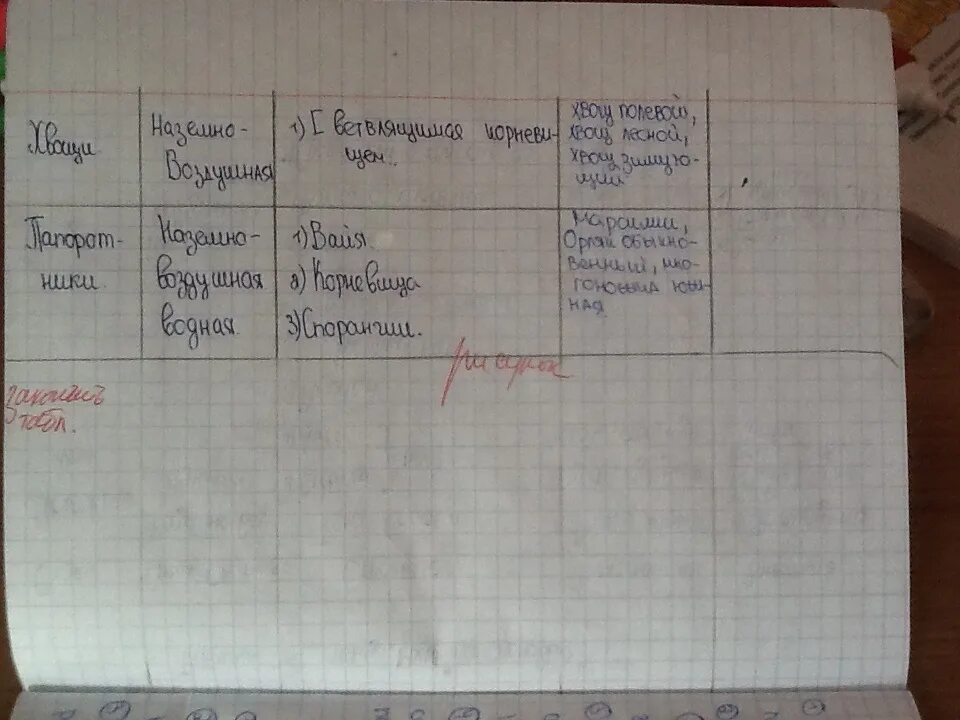 Хвощи
Наземно-
Воздушная
1) С ветвлящимая корневи-
щем..
Хвощ полевой,
Хвощ лесной,
Хвощ зимую-
щий
Папорот-
ники.
Наземно-
воздушная
водная.
1) Вайя
2) Корневища
3) Спорангии.
Марсилии,
Орляк обыкно-
венный,
рисунок
Закончить
табл.